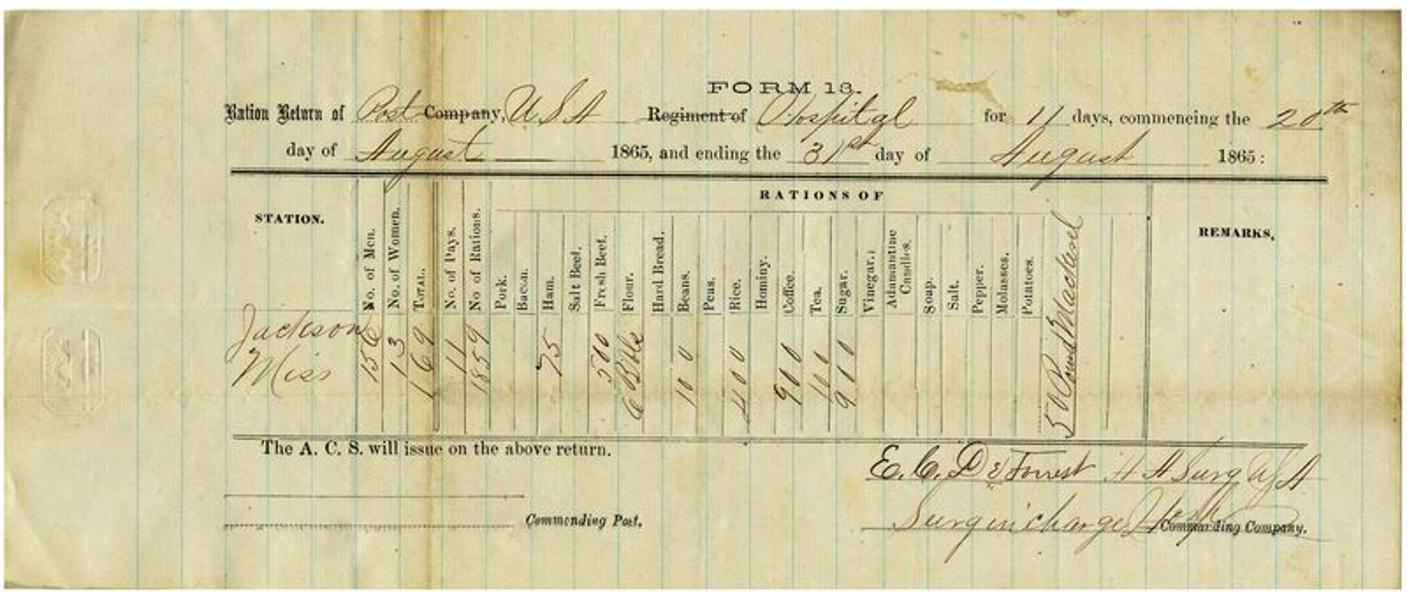 FORM 13.
Ration Return of Post Company, U S A Regiment of Hospital for 11 days, commencing the 20th
day of August 1865, and ending the 31st day of August 1865:
RATIONS OF
STATION. No. of Men. No. of Women. TOTAL. No. of Days. No of Rations. Pork. Bacon. Ham. Salt Beef. Fresh Beef. Flour. Hard Bread. Beans. Peas. Rice. Hominy. Coffee. Tea. Sugar. Vinegar. Adamantine Candles. Soap. Salt. Pepper. Molasses. Potatoes. 50 Pounds Mackerel REMARKS,
Jackson
Miss 156 13 169 11 1859 75 500 6 Bbls 100 400 900 100 900
The A. C. S. will issue on the above return.
E. C. DeForrest A A Surg U S A
Commanding Post.
Surg in charge Hosp Commanding Company.